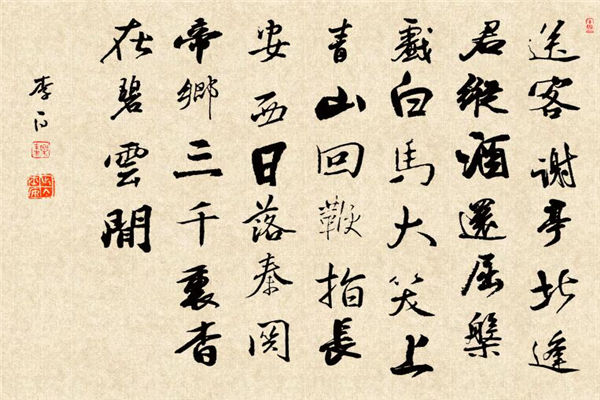 送客謝亭北逢
君縱酒還屈槃
戲白馬大笑上
青山回鞭指長
安西日落秦関
帝鄉三千裏杳
在碧雲間
李白